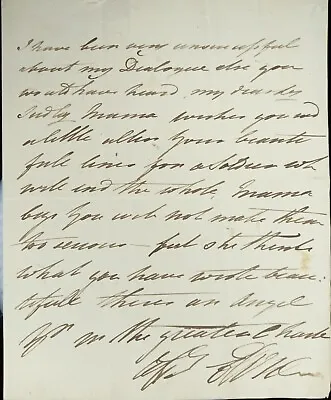 I have been very unsuccessful
about my Dialogue else you
would have heard my dear Lady
Mama wishes you wd
a little alter Your beauti
full lines for a Soldier wh
will end the whole. Mama
begs You will not make them
too serious – but she thinks
what you have wrote beau-
tifull theres an Angel
Yrs in the greatest haste